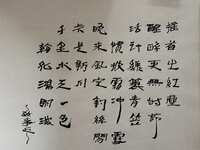 搖首出紅塵
醒醉更無時節
活計綠蓑青笠
慣披霜沖雪
晚來風定釣絲閑
上下是新月
千里水天一色
看孤鴻明滅
~好事近~